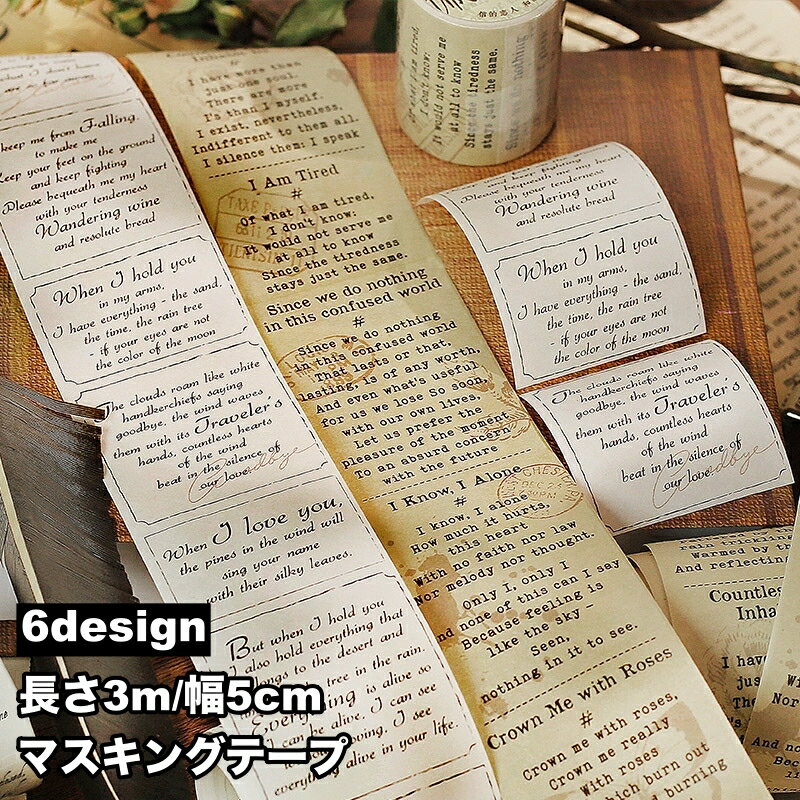 keep me from Falling.
to make me
Keep your feet on the ground
and keep fighting
Please bequeath me my heart
with your tenderness
Wandering wine
and resolute bread
When I hold you
in my arms,
I have everything - the sand,
the time, the rain tree
- if your eyes are not
the color of the moon
The clouds roam like white
handkerchiefs saying
goodbye, the wind waves
them with its Traveler's
hands, countless hearts
of the wind
beat in the silence of
our love.
Goodbye
When I love you,
the pines in the wind will
sing your name
with their silky leaves.
But when I hold you
I also hold everything that
to the desert and
tree in the rain.
Everything is alive so
can be alive. I can see
going, I see
everything alive in your life.
I have more than
just one soul.
There are more
I's than I myself.
I exist, nevertheless,
Indifferent to them all.
I silence them: I speak
I Am Tired
#
Of what I am tired,
I don't know:
It would not serve me
at all to know
Since the tiredness
stays just the same.
Since we do nothing
in this confused world
#
Since we do nothing
in this confused world
That lasts or that,
lasting, is of any worth,
And even what's useful
for us we lose So soon,
with our own lives,
Let us prefer the
pleasure of the moment
To an absurd concern
with the future
I Know, I Alone
#
I know, I alone
How much it hurts,
this heart
With no faith nor law
Nor melody nor thought.
Only I, only I
And none of this can I say
Because feeling is
like the sky-
Seen,
nothing in it to see.
Crown Me with Roses
#
Crown me with roses,
Crown me really
With roses
which burn out
burning
I don't know:
It would not serve me
at all to know
Since the tiredness
stays just the same.
with your tenderness
Wandering wine
and resolute bread
When I hold you
in my arms,
I have everything - the sand,
the time, the rain tree
- if your eyes are not
the color of the moon
The clouds roam like white
handkerchiefs saying
goodbye, the wind waves
them with its Traveler's
hands, countless hearts
of the wind
beat in the silence of
our love.
Goodbye
Warmed by
And reflecting
Countless
Inha
I have
jus
The
6design
長さ3m/幅5cm
マスキングテープ